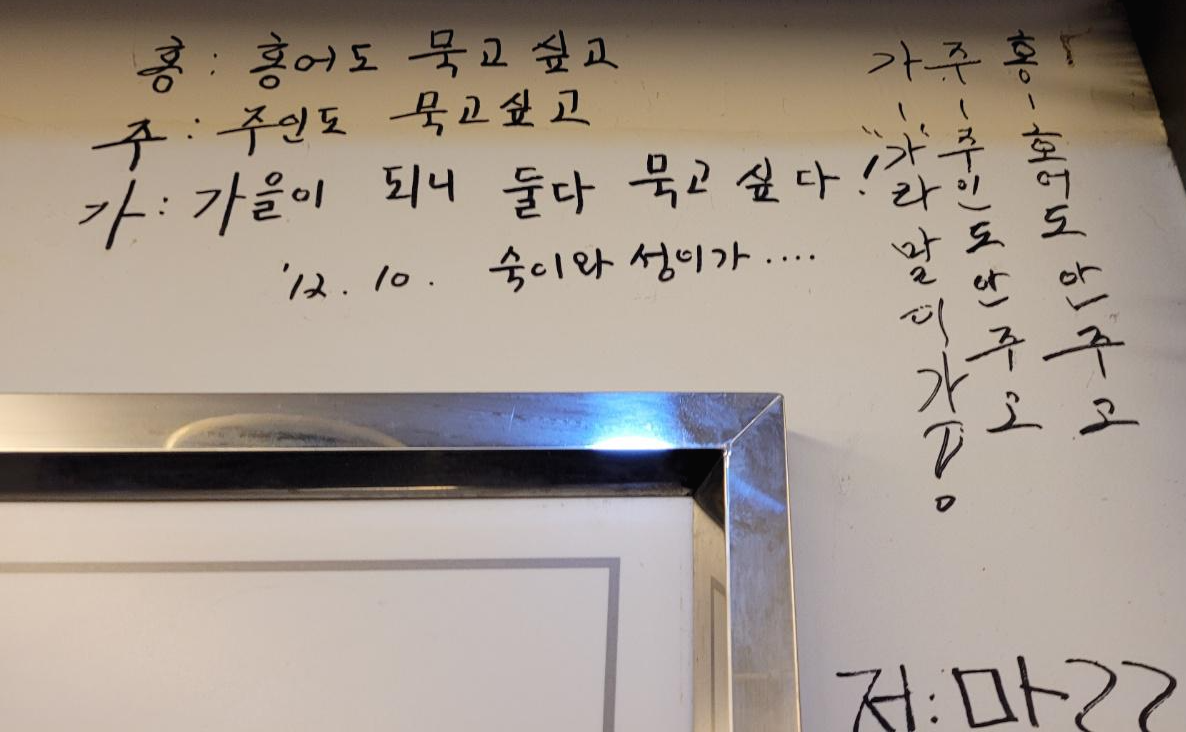 홍: 홍어도 묵고 싶고
주: 주인도 묵고싶고
가: 가을이 되니 둘다 묵고 싶다!
'12. 10. 숙이와 성이가....
홍- 홍어도 안주고
주- 주인도 안주고
가- "가"라 말이가
저: 마